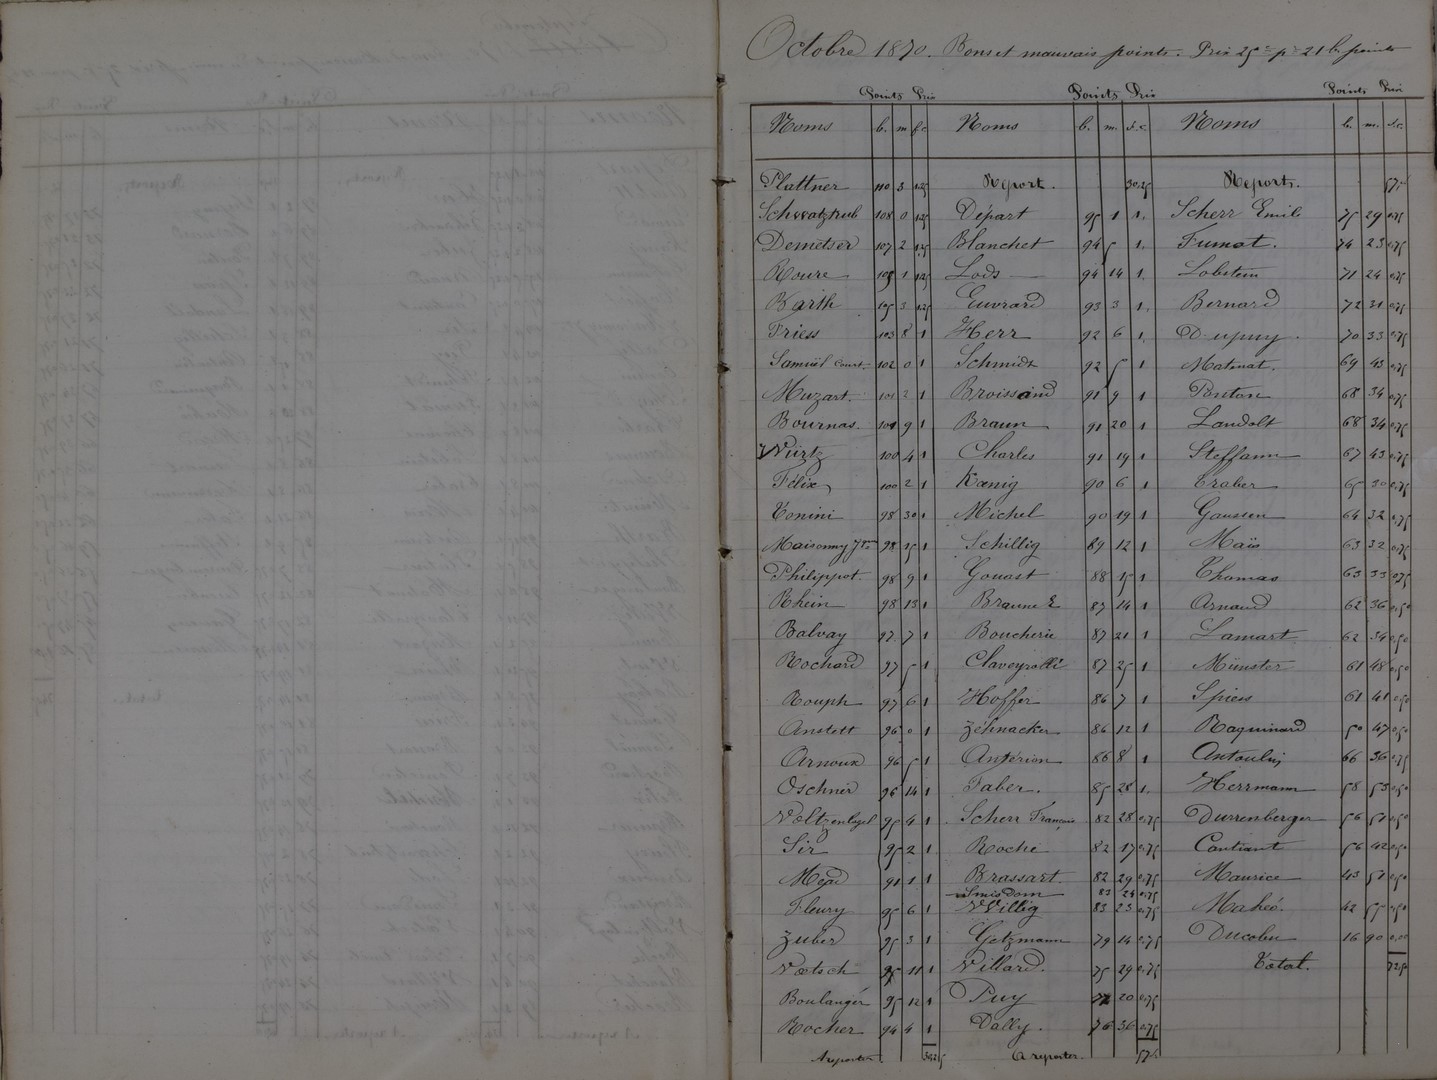 Octobre 1870. Bons et mauvais points. Prix 25 c p 21 b. points
Points Prix Points Prix Points Prix
Noms b. m f.c Noms b. m. f.c. Noms b. m. f.c.
Plattner 110 3 1.25 Report. 30.25 Reports. 57
Schwatztrub 108 0 1.25 Départ 95 1 1. Scherr Emile 75 29 0.75
Demetser 107 2 1.25 Blanchet 94 5 1. Fumat. 74 23 0.75
Roure 1 1.25 Lods 94 14 1. Lobstein 71 24 0.75
Barth 105 3 1.25 Euvrard 93 3 1. Bernard 72 31 0.75
Friess 103 8 1 Herr 92 6 1. Dupuy. 70 33 0.75
Samuël Const. 102 0 1 Schmidt 92 5 1 Matinat. 69 43 0.75
Muzart. 101 2 1 Broissand 91 9 1 Ponton 68 34 0.75
Bournas. 101 9 1 Braun 91 20 1 Landolt 68 34 0.75
Würtz 100 4 1 Charles 91 19 1 Steffann 67 43 0.75
Félix 100 2 1 Kœnig 90 6 1 Traber 65 30 0.75
Tonini 98 30 1 Michel 90 19 1 Gaussen 64 32 0.75
Maisonny 98 15 1 Schillig 89 12 1 Maïs 63 32 0.75
Philippot. 98 9 1 Gouast 88 15 1 Thomas 63 33 0.75
Rhein 98 13 1 Braune E 87 14 1 Arnaud 62 36 0.50
Balvay 97. 7 1 Boucherie 87 21 1 Lamart 62 34 0.50
Rochard 97 5 1 Claveyrolle 87 25 1 Münster 61 48 0.50
Rouph 97 6 1 Hoffer 86 7 1 Spiess 61 41 0.50
Anstett 96 0 1 Zéhnacker 86 12 1 Raguinard 50 47 0.50
Arnoux 96 5 1 Antérion 86 8 1 Antoulin 66 36 0.75
Oschner 96 14 1 Faber. 85 28 1. Herrmann 58 53 0.50
Voeltzenlogel 95 4 1 Scherr François 82 28 0.75 Durrenberger 56 51 0.50
Sir 95 2 1 Roche 82 17 0.75 Coutiant 56 42 0.50
Méja 91 1 1 Brassart. 82 29 0.75 Maurice 43 51 0.50
Smisdom 83 28 0.75
Fleury 95 6 1 Willig 83 23 0.75 Mahéo. 42 55 0.50
Zuber 95 3 1 Getzmann 79 14 0.75 Ducolu 16 90 0.00
Vœtsch 95 11 1 Villard. 75 29 0.75 Total. 72.50
Boulanger 95 12 1 Puy 72 20 0.75
Rocher 94 4 1 Dally. 76 36 0.75
A reporter. 30.25 A reporter. 57